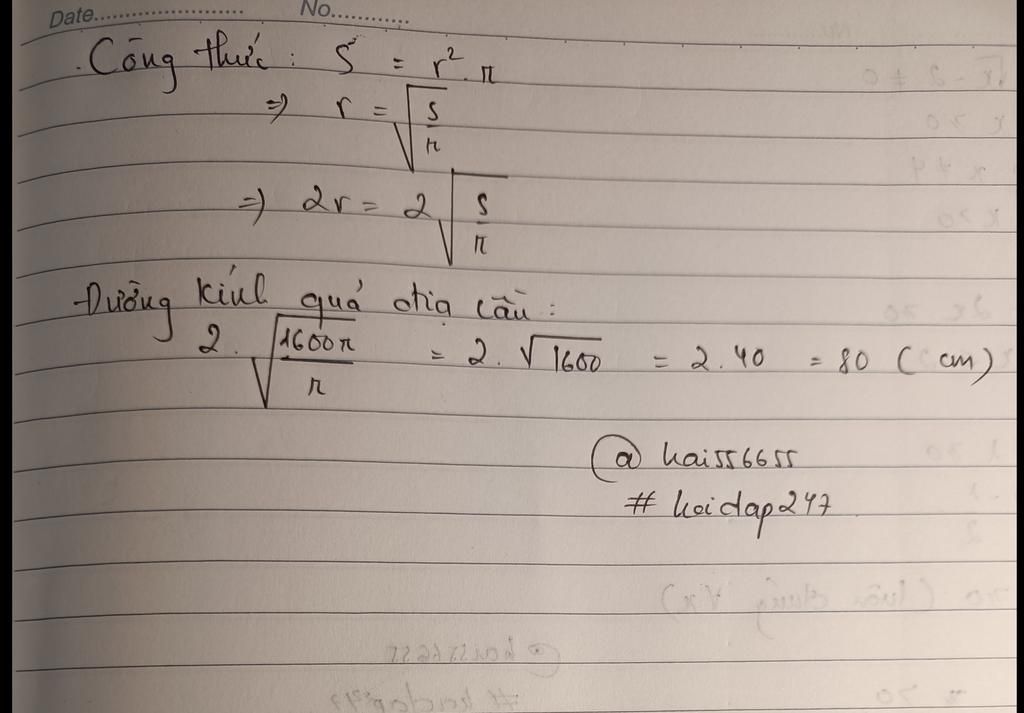 Date........................ No............
. Công thức : S = r². π
=> r = √(S/π)
=> 2r = 2 √(S/π)
Đường kính quả địa cầu :
2. √(1600π/π) = 2. √1600 = 2.40 = 80 ( cm)
@ hai556655
# hoidap247